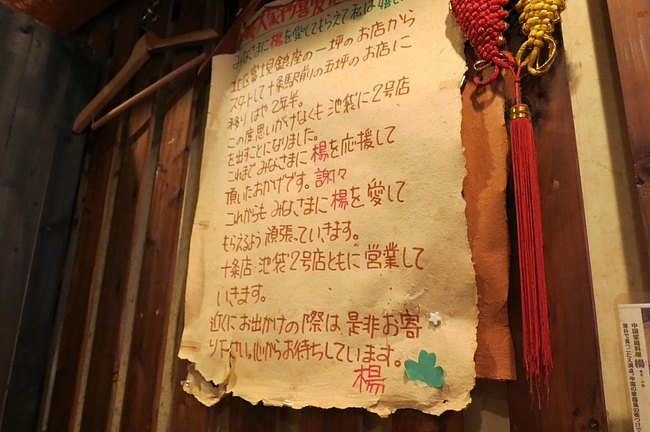 みなさまに楊を愛してもらえて私は
北区富士見銀座の一坪のお店から
スタートして十条駅前の五坪のお店に
移りはや2年半。
この度思いがけなくも池袋に2号店
を出すことになりました。
これまでみなさまに楊を応援して
頂いたおかげです。謝々
これからもみなさまに楊を愛して
もらえるよう頑張っていきます。
十条店・池袋2号店ともに営業して
いきます。
近くにお出かけの際は是非お寄
り下さい。心からお待ちしています。
楊
中国家庭料理 楊